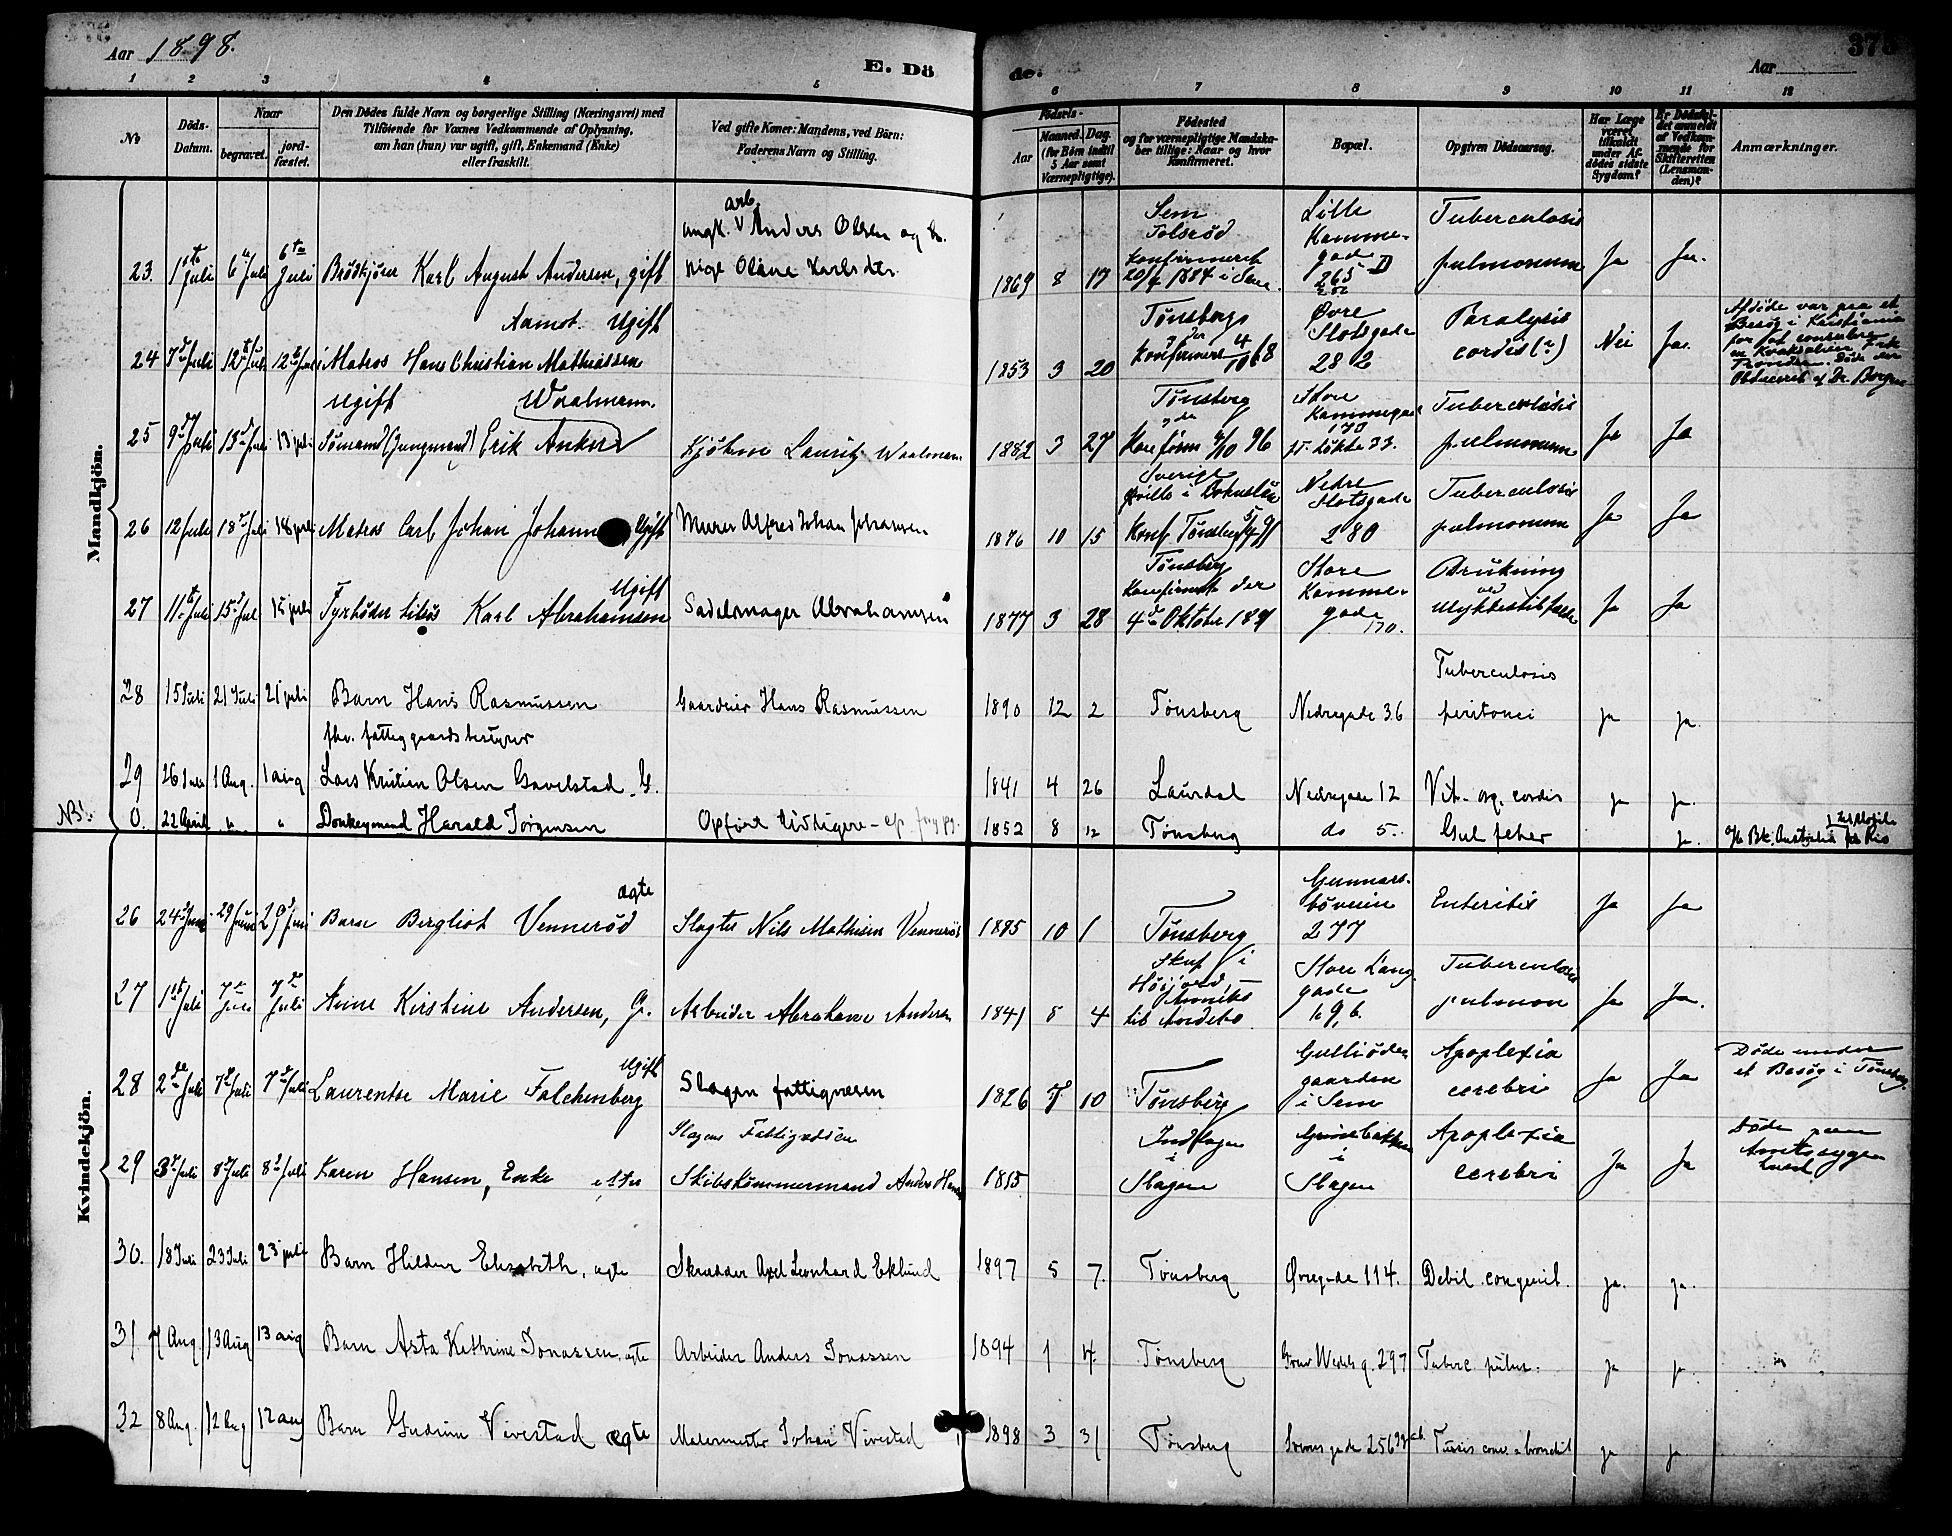 Aar 1898.
E. Dö
de.
Aar
1 2 3 4 5 6 7 8 9 10 11 12
No
Döds-Datum.
Naar
begravet.
jord-fæstet.
Den Dödes fulde Navn og borgerlige Stilling (Næringsvei) med
Tilföiende for Voxnes Vedkommende af Oplysning,
om han (hun) var ugift, gift, Enkemand (Enke)
eller fraskilt.
Ved gifte Koner: Mandens, ved Börn:
Faderens Navn og Stilling.
Födsels-
Aar
Maaned. Dag.
(for Börn indtil
5 Aar samt
Værnepligtige).
Födested
og for værnepligtige Mandska-
ber tillige: Naar og hvor
konfirmeret.
Bopæl.
Opgiven Dödsaarsag.
Har Læge
været
tilkaldt
under Af-
dödes sidste
Sygdom?
Er Dödsfal-
det anmeldt
af Vedkom-
mende for
Skifteretten
(Lensman-
den)?
Anmærkninger.
Mandkjön.
23. 1ste Juli 6te Juli 6te Juli Brödkjörer Karl August Andersen, gift
arb. Anders Olsen og
Pige Oline Karlsdtr.
1869 8 17
Sem
konfirmeret
i Sem
Lille
Kamme-
gade
265 D
Tuberculosis
pulmonum Ja Ja.
24 7de Juli 12te Juli 12te Juli Aamot. Ugift
Matros Hans Christian Mathiassen
1853 3 20
Tönsberg
Konfirmeret 4/10 68
Övre
Slotsgade
282
Paralysis
cordis (?) Nei Ja.
Afdöde var paa et
Besög i Kristiania
for at consulere
en Kvaksalver
Obduceret af Dr. Borgen
25 9de Juli 13de Juli 13 juli Ugift Waalmann.
Sömand (Jungmand) Erik Anker
Kjöbm. Lauritz Waalmann
1882 3 27
Tönsberg
Konfirm 4/10 96
Store
Kammegade
170
Tuberculosis
pulmonum Ja Ja
26 12 Juli 18de Juli 18 juli Matros Carl Johan Johann Ugift
Murer Alfred Johan Johansen
1876 10 15
Sverige
i Bohuslän
Konf. Tönsberg
Nedre
Slotsgade
280
Tuberculosis
pulmonum Ja Ja
27 11te Juli 15de Jul 15 juli Ugift
Fyrböder Karl Abrahamsen
Sadelmager Abrahamsen
1877 3 28
Tönsberg
Konfirmeret der
4de Oktober 1891
Store
Kamme-
gade
170.
Drukning
ved
Ulykkestilfælde Ja Ja
28 15 Juli 21 Juli 21 juli Barn Hans Rasmussen
Gaardeier Hans Rasmussen
1890 12 2 Tönsberg Nedregade 36
Tuberculosis
peritonei ja ja.
fhv. fattiggaardsbestyrer
29 26 Juli 1 Aug. 1 aug Lars Kristian Olsen Gavelstad. G.
1841 4 26 Laurdal Nedregade 12 Vit. org. cordis ja ja.
NB! 0. 22 April " " Donkeymand Harald Jörgensen
Opfört tidligere
1852 8 12 Tönsberg do 5. Gul feber ja.
Bk. Australia fra Rio
Kvindekjön.
26 24de Juni 29 Juni 29de Juni ægte
Barn Bergliot Venneröd
Slagter Nils Mathisen Venneröd
1895 10 1 Tönsberg
Gunnars-
böveien
277
Enteritis Ja Ja
27 1ste Juli 7de Juli 7de Juli Anne Kirstine Andersen, G.
Arbeider Abraham Andersen
1841 8 4
i
Höijord,
Anneks
til Andebo
Store Lang-
gade
19 b.
Tuberculosis
pulmon Ja Ja.
28 2de Juli 7de Juli 7de Juli Ugift
Laurentse Marie Falchenberg
Slagen fattigvæsen
1826 7 10 Tönsberg
gaarden
i Sem
Apoplexia
cerebri Ja Ja
Döde under
et Besög i Tönsberg
29 3de Juli 8de Juli 8de Juli Karen Hansen, Enke efter
Slagens Fattigvæsen
Skibstömmermand Anders Hansen
1815
Indlagen
i
Slagen
Grinebakken
i
Slagen
Apoplexia
cerebri Ja Ja
Döde paa
Amtssyge-
huset
30. 18 Juli 23 Juli 23 juli Barn Hildur Elisabeth, ægte
Skrædder Axel Leonhard Eklund
1897 5 7. Tönsberg Övregade 114. Debil. congenit. ja. ja.
31 7 Aug. 13 Aug 13 aug Barn Asta Kathrine Jonassen, ægte
Arbeider Anders Jonassen
1894 1 4. Tönsberg Grev Wedels g. 297 Tuberc. pulm. ja ja
32 8 Aug. 12 Aug 12 aug Barn Gudrun Virestad ægte
Malermester Johan Virestad
1898 3 31 Tönsberg gade 256 Tussis conv. bronchit ja ja